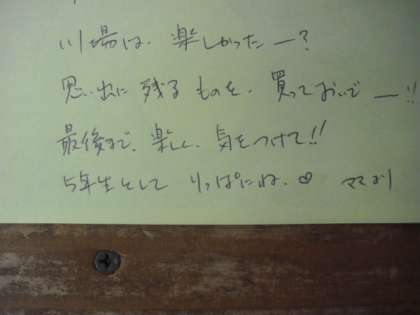 川場は、楽しかったー?
思い出に残るものを、買っておいでー!!
最後まで、楽しく、気をつけて!!
5年生として りっぱにね。♡ ママより